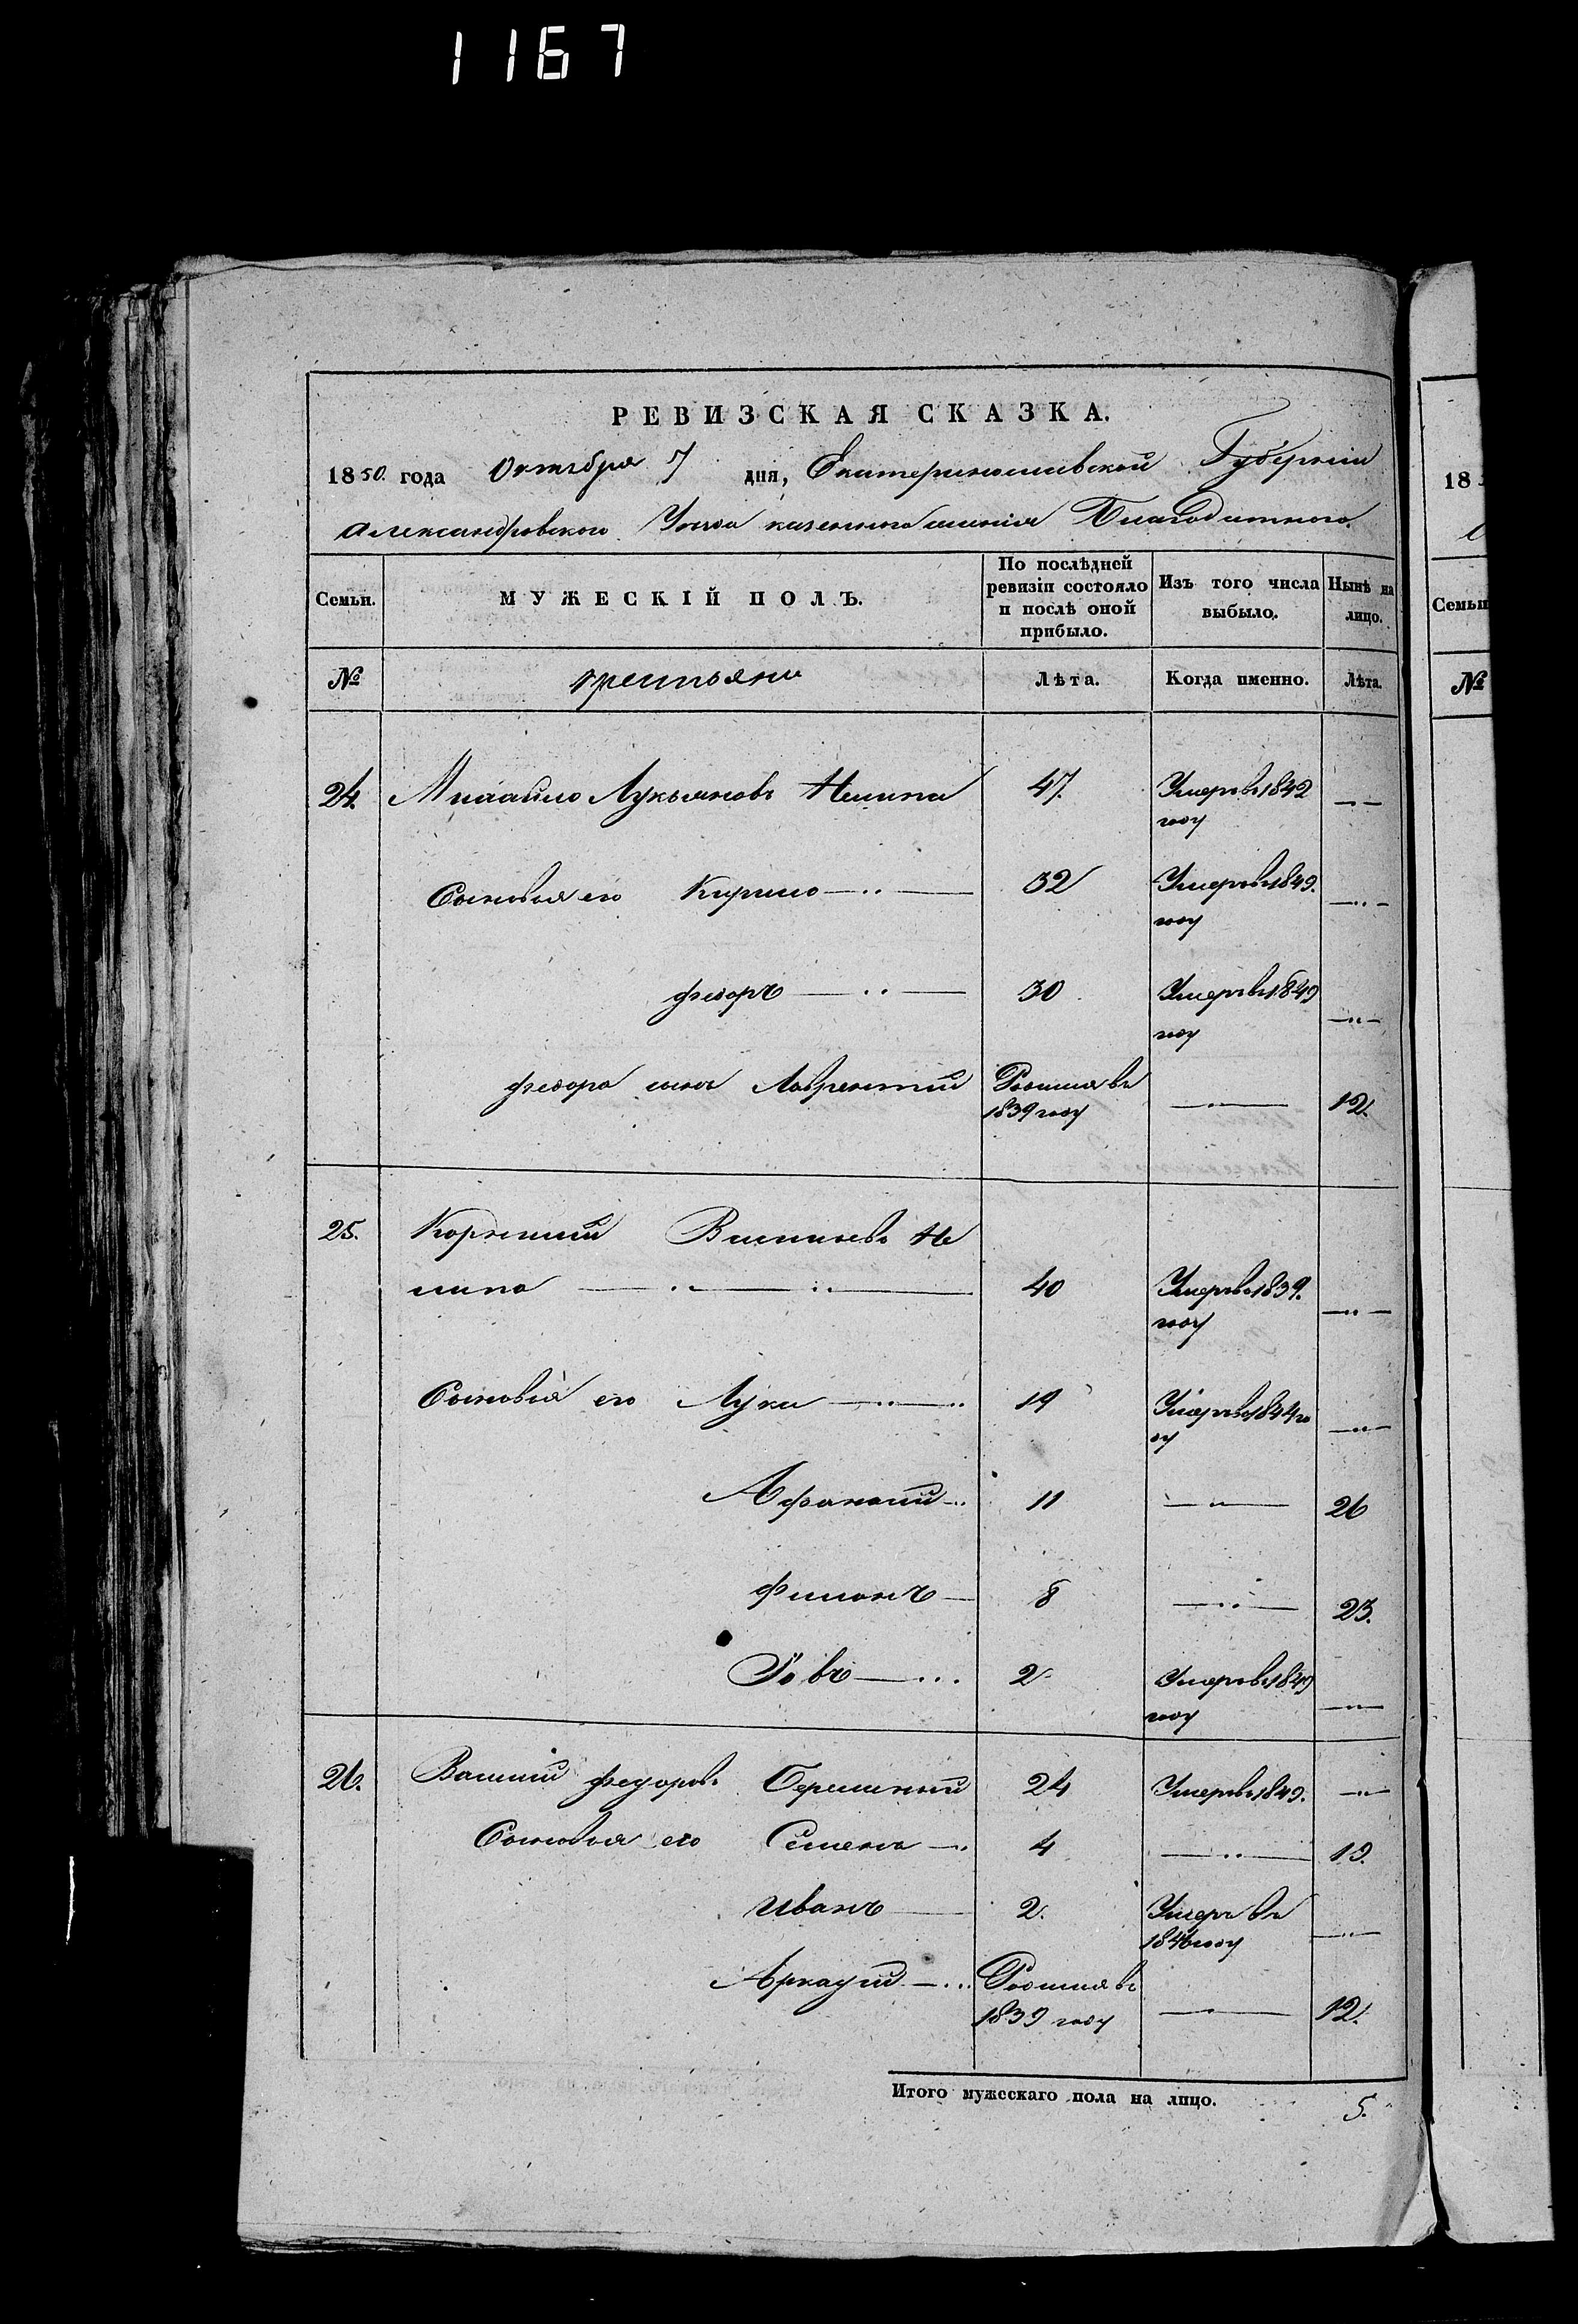 1167
РЕВИЗСКАЯ СКАЗКА.
1850 года Октября 7 дня, Екатеринославской Губернии
Александровского Уезда казенного имения Благодатного.
Семьи.
МУЖЕСКІЙ ПОЛЪ.
По послѣдней ревизіи состояло и послѣ оной прибыло.
Изъ того числа выбыло.
Нынѣ на лицо.
№
крестьяне
Лѣта.
Когда именно.
Лѣта.
24. Михайло Лукьяновъ 47. Умеръ въ 1842 году —
Сыновья его Кирило 32 Умеръ въ 1849. году —
Федоръ 30 Умеръ въ 1849 году —
Федора сынъ Лаврентий Родился въ 1839 году — 12.
25. Корнилий
40 Умеръ въ 1839. году —
Сыновья его Лука 19 Умеръ въ 1844 году —
Афанасий 11 — 26
Филонъ 8 — 23.
Іовъ 2 Умеръ въ 1849 году —
26. Василий Федоровъ 24 Умеръ въ 1849. —
Сыновья его Семенъ 4 — 19.
Иванъ 2. Умеръ въ 1846 году —
Аркадий Родился въ 1839 году — 12.
Итого мужескаго пола на лицо. 5.
18
Семьи
№